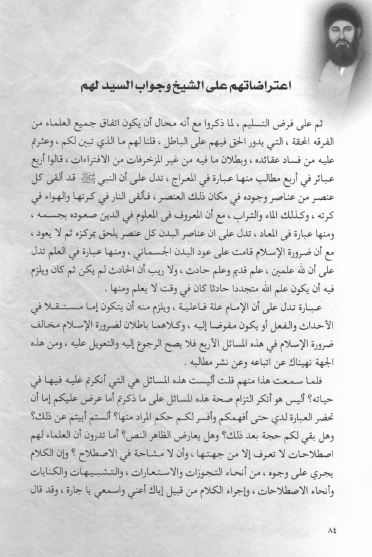 اعتراضاتهم على الشيخ وجواب السيد لهم
ثم على فرض التسليم ، لما ذكروا مع أنه محال أن يكون اتفاق جميع العلماء من
الفرقه المحقة ، التي يدور الحق فيهم على الباطل ، قلنا لهم ما الذي تبين لكم ، وعثرتم
عليه من فساد عقائده ، وبطلان ما فيه من غير المزخرفات من الافتراءات ، قالوا أربع
عبائر في أربع مطالب منها عبارة في المعراج ، تدل على أن النبي ﷺ قد ألقى كل
عنصر من عناصر وجوده في مكان ذلك العنصر ، فألقى النار في كرتها والهواء في
كرته ، وكذلك الماء والتراب ، مع أن المعروف في المعلوم في الدين صعوده بجسمه ،
ومنها عبارة في المعاد ، تدل على ان عناصر البدن كل عنصر يلحق بمركزه ثم لا يعود ،
مع أن ضرورة الإسلام قامت على عود البدن الجسماني ، ومنها عبارة في العلم تدل
على أن لله علمين ، علم قديم وعلم حادث ، ولا ريب أن الحادث لم يكن ثم كان ويلزم
فيه أن يكون علم الله متجددا حادثا كان في وقت لا يعلم ومنها .
عبارة تدل على أن الإمام علة فاعلية ، ويلزم منه أن يتكون إما مستقلا في
الأحداث والفعل أو يكون مفوضا إليه ، وكلاهما باطلان لضرورة الإسلام مخالف
ضرورة الإسلام في هذه المسائل الأربع فلا يصح الرجوع إليه والتعويل عليه ، ومن هذه
الجهة نهيناك عن اتباعه وعن نشر مطالبه .
فلما سمعت هذا منهم قلت أليست هذه المسائل هي التي أنكرتم عليه فيها في
حياته؟ أليس هو أنكر التزام صحة هذه المسائل على ما ذكرتم أما عرض عليكم إما أن
تحضر العبارة لدي حتى أفهمكم وأفسر لكم حكم المراد منها؟ ألستم أبيتم عن ذلك؟
وهل بقي لكم حجة بعد ذلك؟ وهل يعارض الظاهر النص؟ أما تدرون أن العلماء لهم
اصطلاحات لا تعرف إلا من جهتها ، وأن لا مشاحة في الاصطلاح ؟ وإن الكلام
يجري على وجوه ، من أنحاء التجوزات والاستعارات ، والتشبيهات والكنايات
وأنحاء الاصطلاحات ، وإجراء الكلام من قبيل إياك أعني واسمعي يا جارة ، وقد قال
٨٤